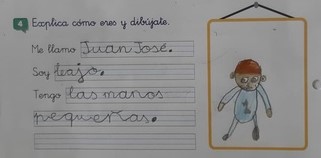 4 Explica cómo eres y dibújate.
Me llamo Juan José.
Soy bajo.
Tengo las manos
pequeñas.